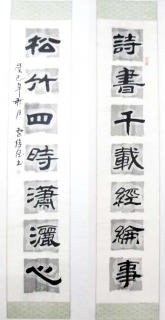 詩書千載經綸事
松竹四時瀟灑心